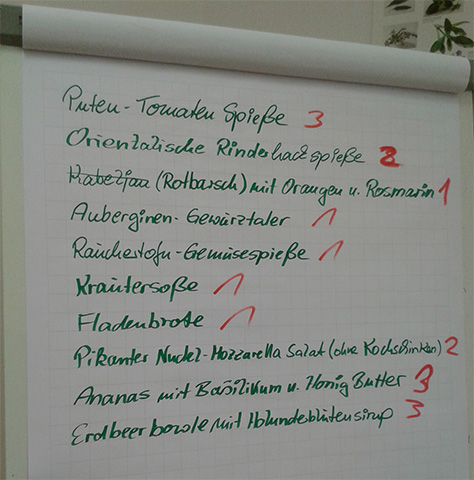 Puten-Tomaten Spieße 3
Orientalische Rinderhackspieße 2
Kabeljau (Rotbarsch) mit Orangen u. Rosmarin 1
Auberginen-Gewürztaler 1
Räuchertofu-Gemüsespieße 1
Kräutersoße 1
Fladenbrote 1
Pikanter Nudel-Mozzarella Salat (ohne Kochschinken) 2
Ananas mit Basilikum u. Honig Butter 3
Erdbeerbowle mit Holunderblütensirup 3